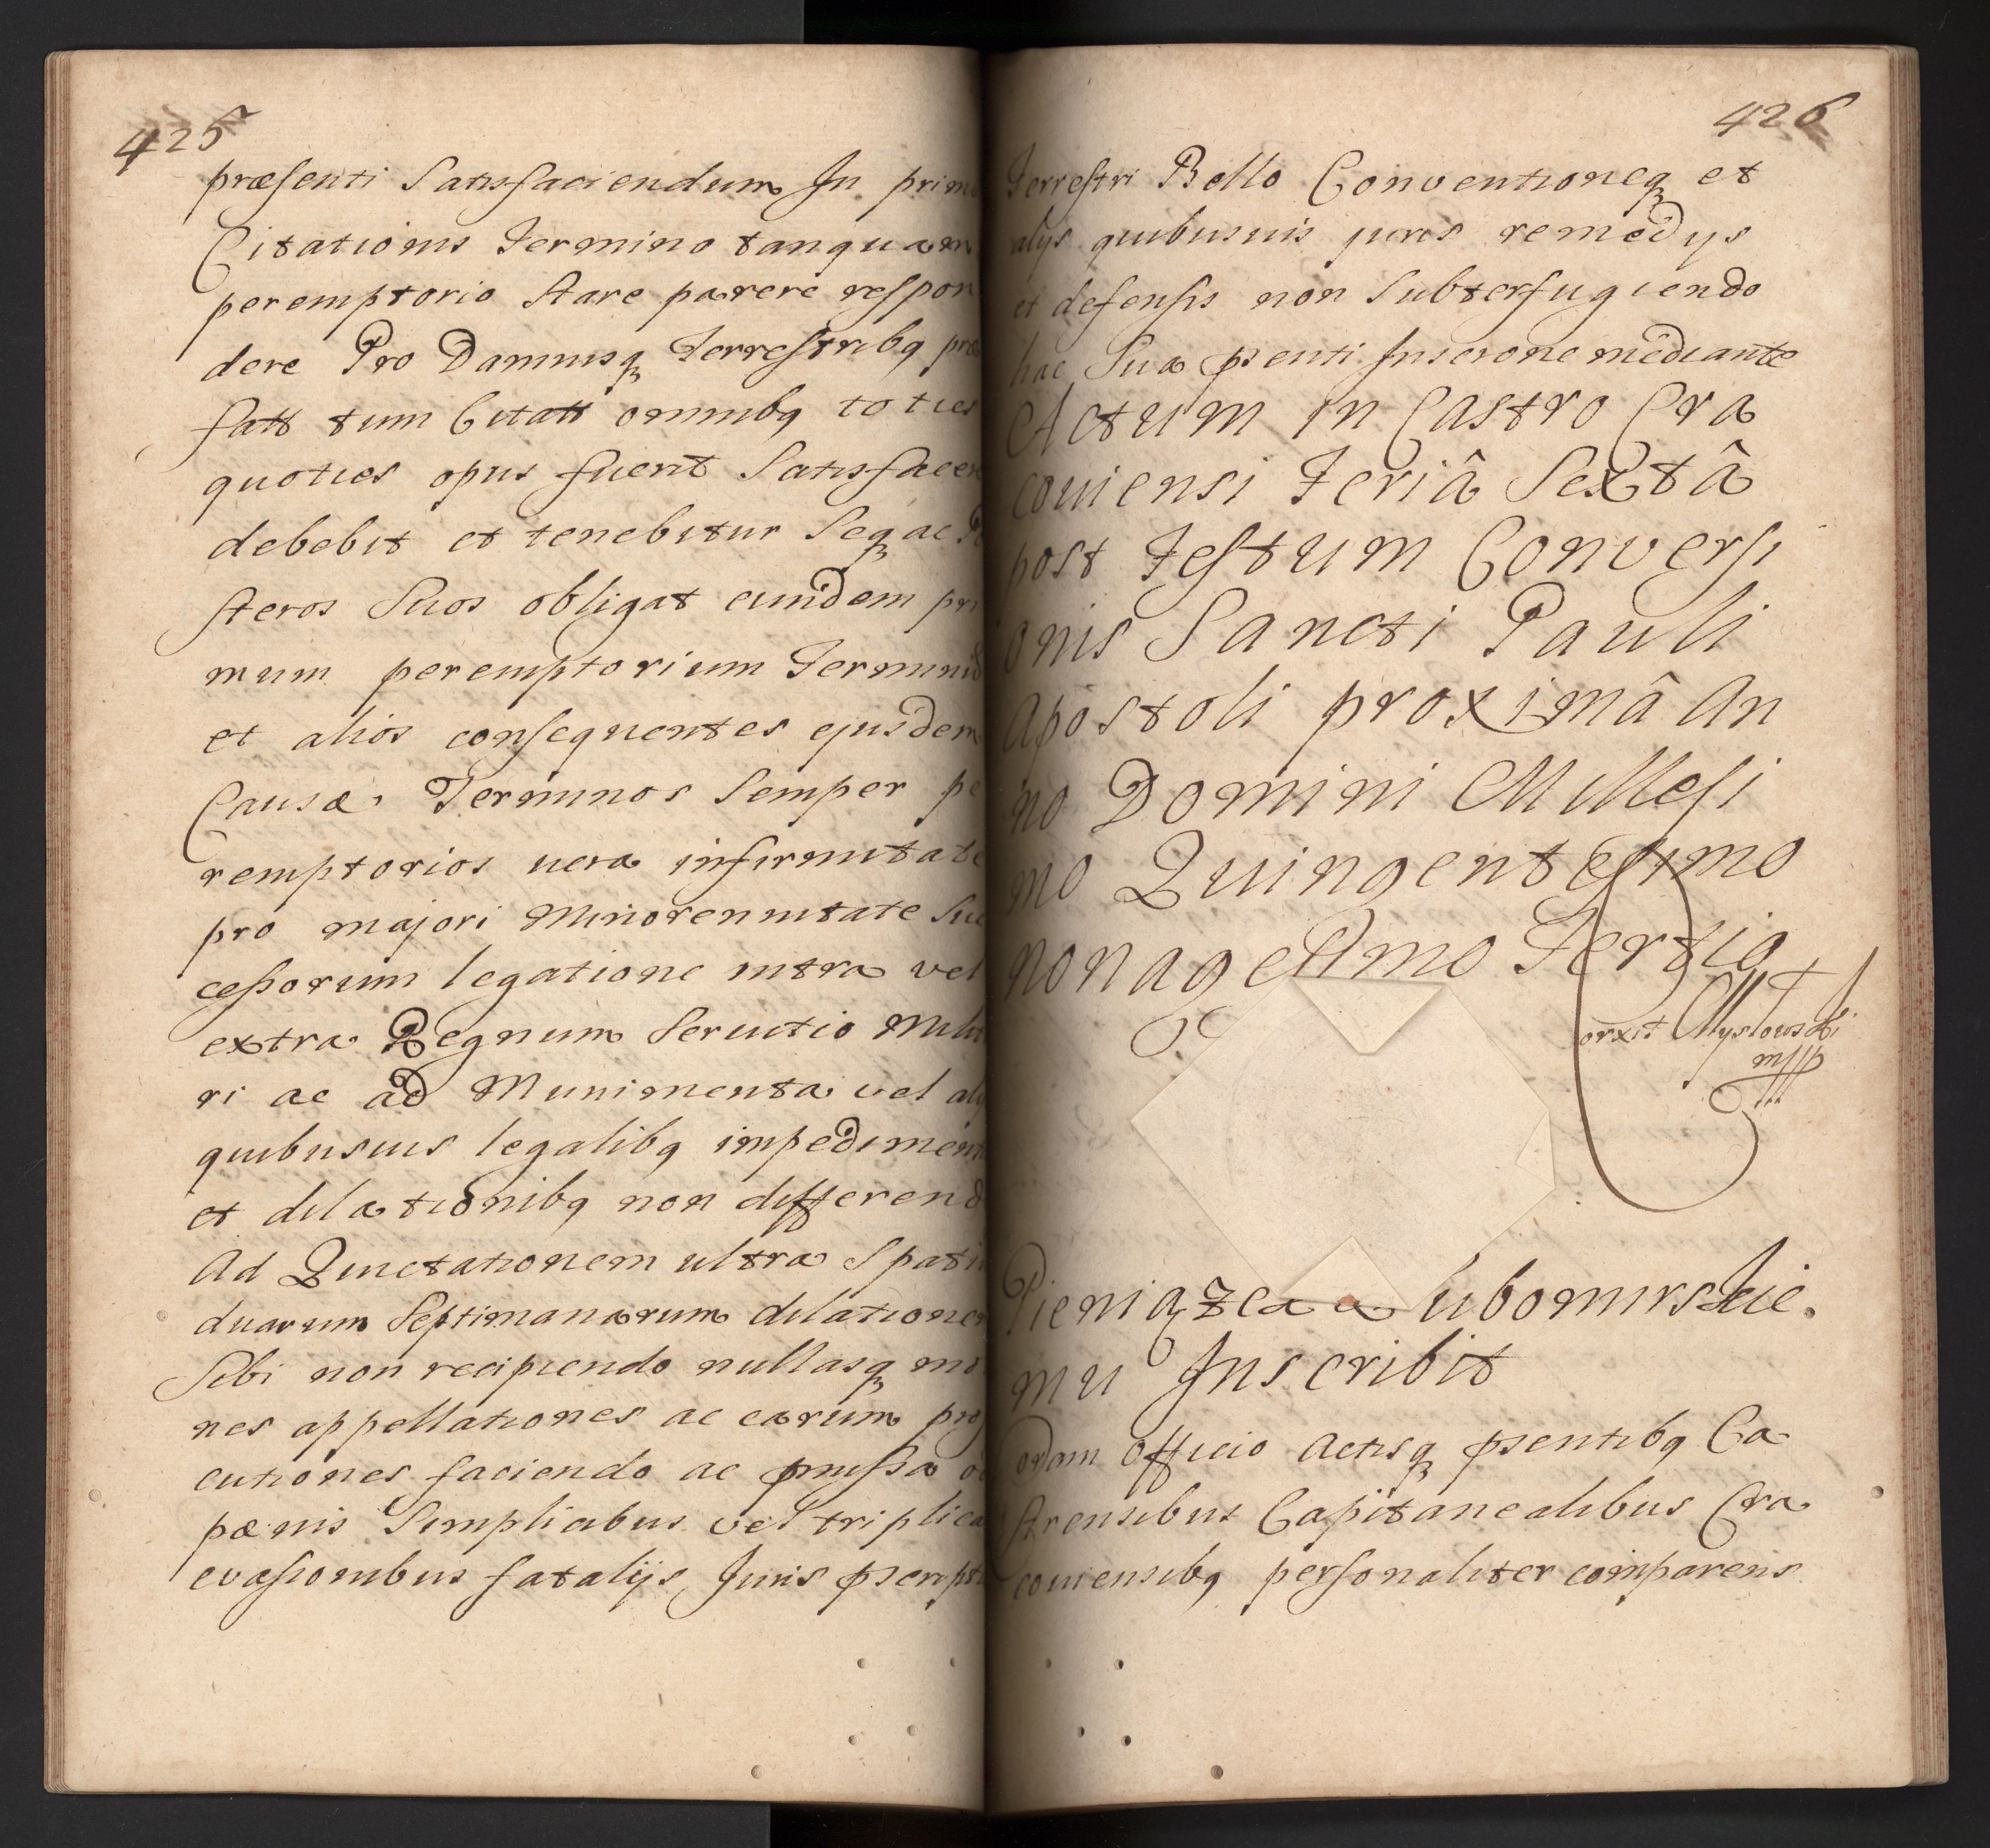 425
præsenti Satisfaciendum In primo
Citationis Termino tanquam
peremptorio stare parere respon
dere Pro Damnisq Terrestribq præ
fatt tum Citatt omnibq toties
quoties opus fuerit Satisfacere
debebit et tenebitur Seq ac Po
steros Suos obligat eundem pri
mum peremptorium Terminū
et alios consequentes ejusdem
Causæ Terminos Semper pe
remptorios vera infirmitate
pro majori Minorennitate Suc
cessorum legatione intra vel
extra Regnum Servitio Milita
ri ac ad Munimenta vel alys
quibusvis legalibq impediment
et dilationibq non differend
Ad Quictationem ultra Spatiu
duarum Septimanarum dilationem
Sibi non recipiendo nullasq mo
nes appellationes ac earum pro
cutiones faciendo ac pmissa
pænis Simplicibus vel triplica
evasionibus fatalijs Juris pscript
426
Terrestri Bello Conventioneq et
alys quibusvis juris remedys
et defensis non Subterfugiendo
hac Sua psenti Inscrone mediante
Actum in Castro Cra
coviensi Feriâ Sextâ
post Festum Conversi
onis Sancti Pauli
Apostoli proximâ An
no Domini Millesi
mo Quingentesimo
nonagesimo Tertio
orxit Myslowski
mpp
Pieniązek a Lubomirskie.
mu Inscribit
oram Officio Actisq psentibq Ca
strensibus Capitanealibus Cra
coviensibq personaliter comparens